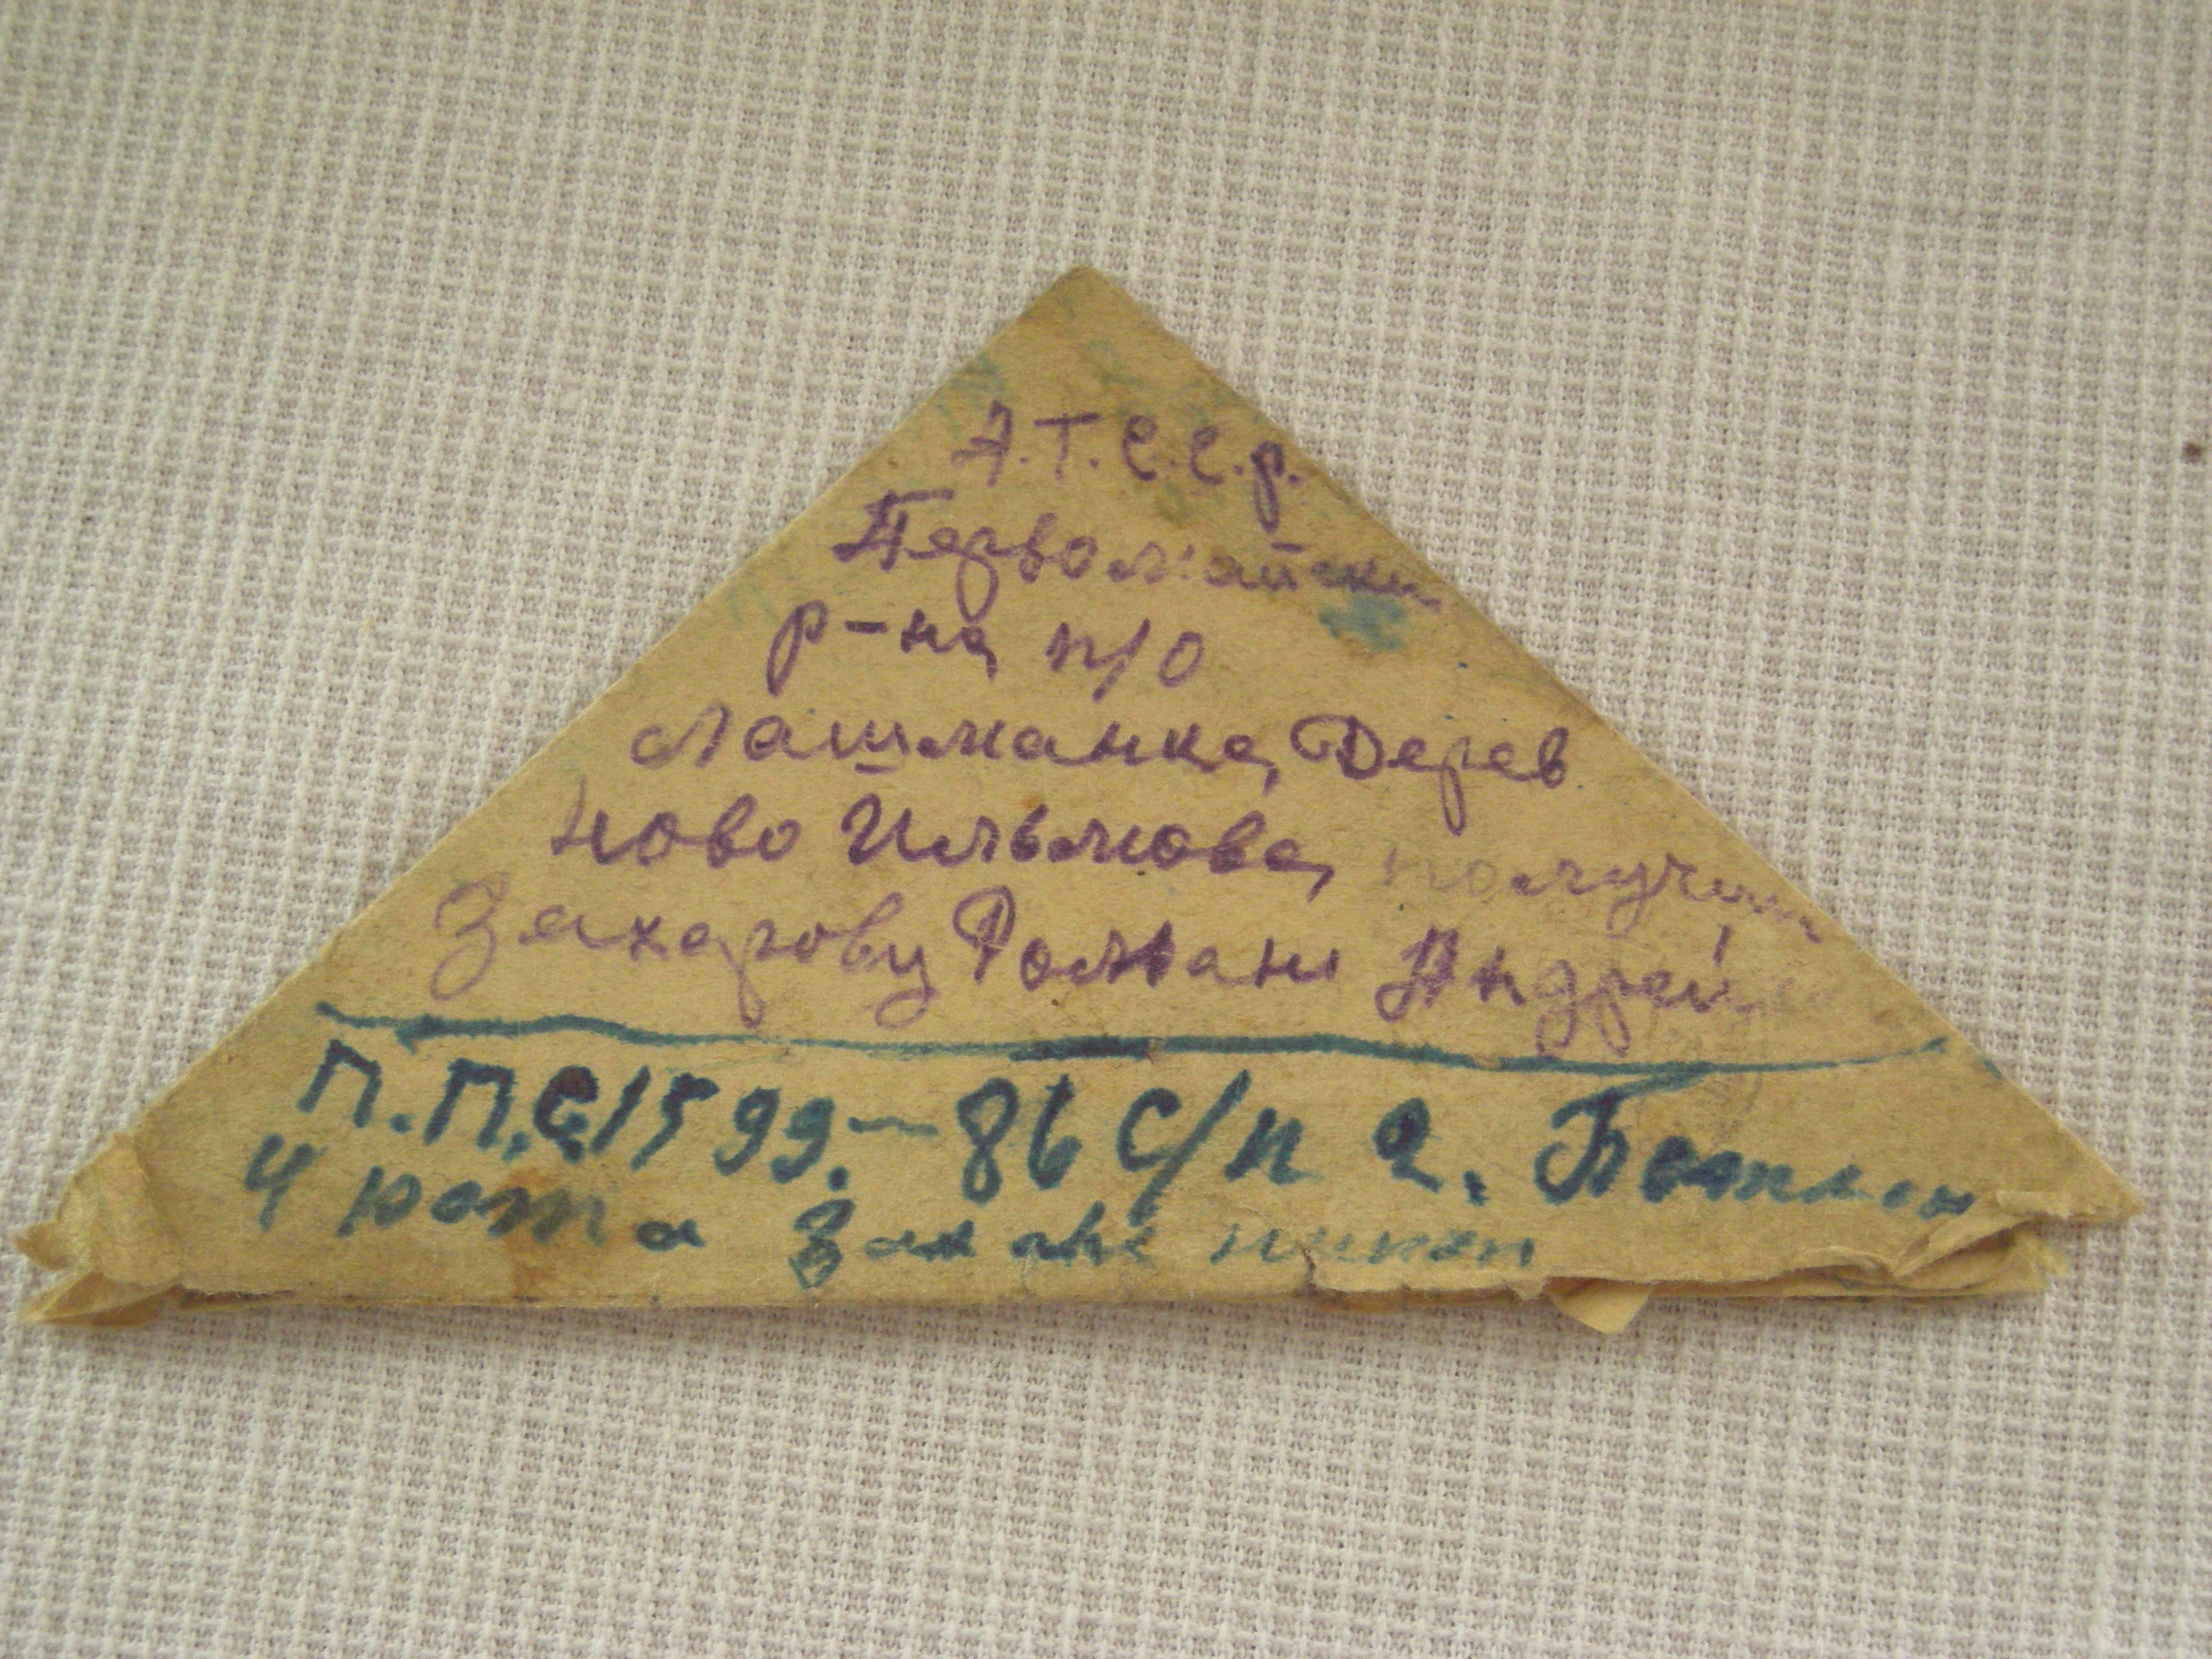 А.Т.С.С.р.
Первомайски
р-на п/о
Лашманка, Дерев
Ново Ильмова, получит
Захарову Роман Андрей
П.П.С. 1599.— 86 С/п 2. Батальон
4 рота